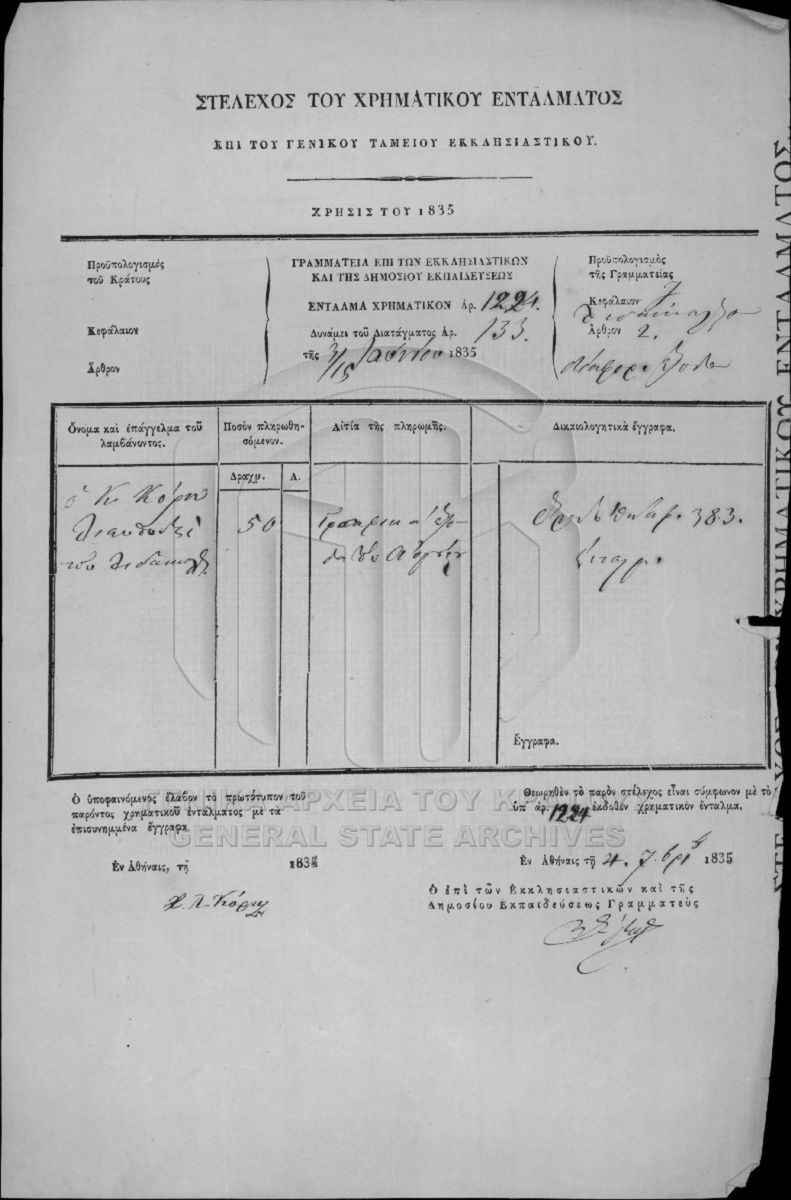 ΣΤΕΛΕΧΟΣ ΤΟΥ ΧΡΗΜΑΤΙΚΟΥ ΕΝΤΑΛΜΑΤΟΣ
ΕΠΙ ΤΟΥ ΓΕΝΙΚΟΥ ΤΑΜΕΙΟΥ ΕΚΚΛΗΣΙΑΣΤΙΚΟΥ.
ΧΡΗΣΙΣ ΤΟΥ 1835
Προϋπολογισμὸς
τοῦ Κράτους
Κεφάλαιον
Ἄρθρον
ΓΡΑΜΜΑΤΕΙΑ ΕΠΙ ΤΩΝ ΕΚΚΛΗΣΙΑΣΤΙΚΩΝ
ΚΑΙ ΤΗΣ ΔΗΜΟΣΙΟΥ ΕΚΠΑΙΔΕΥΣΕΩΣ
ΕΝΤΑΛΜΑ ΧΡΗΜΑΤΙΚΟΝ ἀρ. 1224.
Δυνάμει τοῦ Διατάγματος ἀρ. 133.
τῆς 3/15 Ἰουνίου 1835
Προϋπολογισμὸς
τῆς Γραμματείας
Κεφάλαιον 7
Ἄρθρον 2.
Ὄνομα καὶ ἐπάγγελμα τοῦ
λαμβάνοντος.
Ποσὸν πληρωθη-
σόμενον.
Δραχμ. Λ.
Αἰτία τῆς πληρωμῆς.
Δικαιολογητικὰ ἔγγραφα.
ὁ Κος Κόρη
50
383.
Ἔγγραφα.
Ὁ ὑποφαινόμενος ἔλαβον τὸ πρωτότυπον τοῦ
παρόντος χρηματικοῦ ἐντάλματος μὲ τὰ
ἐπισυνημμένα ἔγγραφα
Ἐν Ἀθήναις, τῇ 1835
Θεωρηθὲν τὸ παρὸν στέλεχος εἶναι σύμφωνον μὲ τὸ
ὑπ' ἀρ. 1224 ἐκδοθὲν χρηματικὸν ἔνταλμα.
Ἐν Ἀθήναις τῇ 4. 7.βρίου 1835
Ὁ ἐπὶ τῶν Ἐκκλησιαστικῶν καὶ τῆς
Δημοσίου Ἐκπαιδεύσεως Γραμματεὺς
ΓΕΝΙΚΑ ΑΡΧΕΙΑ ΤΟΥ ΚΡΑΤΟΥΣ
GENERAL STATE ARCHIVES